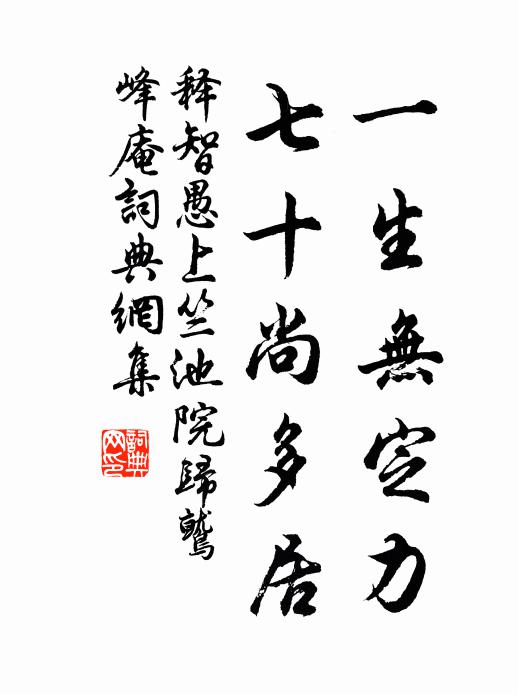 一生無定力
七十尚多居
释智愚上竺池院歸鷲
峰庵詞典網集
詞典
网印